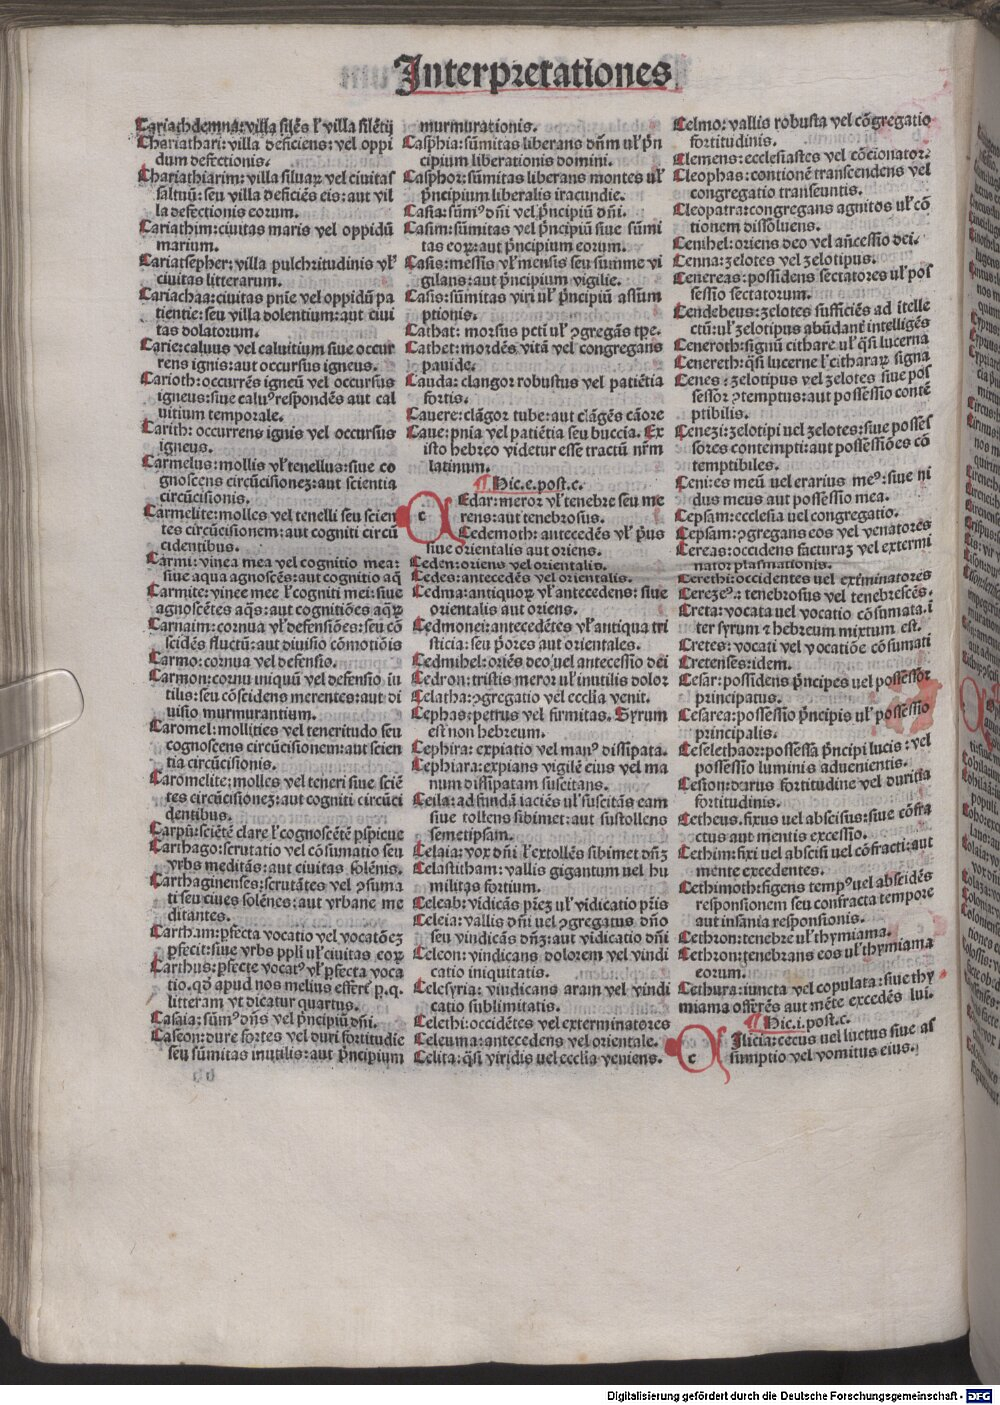 Interpretationes
Cariachdemna: villa silēs ł villa silētij
Chariathari: villa deficiens: vel oppi
dum defectionis.
Chariathiarim: villa siluaꝝ vel ciuitas
saltuū: seu villa deficiēs eis: aut vil
la defectionis eorum.
Cariathim: ciuitas maris vel oppidū
marium.
Cariatsepher: villa pulchritudinis vł
ciuitas litterarum.
Cariachaa: ciuitas pnie vel oppidū pa
tientie: seu villa dolentium: aut ciui
tas dolatorum.
Carie: caluus vel caluitium siue occur
rens ignis: aut occursus igneus.
Carioth: occurrēs igneū vel occursus
igneus: siue caluꝰ respondēs aut cal
uitium temporale.
Carith: occurrens ignis vel occursus
igneus.
Carmelus: mollis vł tenellus: siue co
gnoscens circūcisioneꝫ: aut scientia
circūcisionis.
Carmelite: molles vel tenelli seu scien
tes circūcisionem: aut cogniti circū
cidentibus.
Carmi: vinea mea vel cognitio mea:
siue aqua agnoscēs: aut cognitio aq̄
Carmite: vinee mee ł cogniti mei: siue
agnoscētes aq̄s: aut cognitiōes aq̄ꝝ
Carnaim: cornua vł defensiōes: seu cō
scidēs fluctū: aut diuisio cōmotiōis
Carmo: cornua vel defensio.
Carmon: cornu iniquū vel defensio iu
tilus: seu cōscidens merentes: aut di
uisio murmurantium.
Caromel: mollities vel teneritudo seu
cognoscens circūcisionem: aut scien
tia circūcisionis.
Caromelite: molles vel teneri siue sciē
tes circūcisioneꝫ: aut cogniti circūci
dentibus.
Carpū: sciētē clare ł cognoscētē pspicue
Carthago: scrutatio vel cōsumatio seu
vrbs meditās: aut ciuitas solēnis.
Carthaginenses: scrutātes vel ꝯsuma
ti seu ciues solēnes: aut vrbane me
ditantes.
Cartham: pfecta vocatio vel vocatōeꝫ
pfecit: siue vrbs ppli uł ciuitas eoꝝ
Carthus: pfecte vocatꝰ vł pfecta voca
tio. qđ apud nos melius effert̄ p. q.
litteram vt dicatur quartus.
Casaia: sūmꝰ dn̄s vel p̄ncipiū dn̄i.
Caseon: dure fortes vel duri fortitudie
seu sūmitas inutilis: aut p̄ncipium
murmurationis.
Casphia: sūmitas liberans dn̄m uł p̄n
cipium liberationis domini.
Casphor: sūmitas liberans montes uł
p̄ncipium liberalis iracundie.
Casia: sūmꝰ dn̄i vel p̄ncipiū dn̄i.
Casim: sūmitas vel p̄ncipiū siue sūmi
tas eoꝝ: aut p̄ncipium eorum.
Casis: messis vł mensis seu summe vi
gilans: aut p̄ncipium vigilie.
Casis: sūmitas viri uł p̄ncipiū assum
ptionis.
Cathat: morsus peti uł ꝯgregās tpe.
Cathet: mordēs vitā vel congregans
pauide.
Cauda: clangor robustus vel patiētia
fortis.
Cauere: clāgor tube: aut clāgēs cāore
Caue: pnia vel patiētia seu buccia. Ex
isto hebreo videtur esse tractū nr̄m
latinum.
¶ Hic. e. post. c.
c Edar: meror vł tenebre seu me
rens: aut tenebrosus.
Cedemoth: antecedēs vł p̄us
siue orientalis aut oriens.
Ceden: oriens vel orientalis.
Cedes: antecedēs vel orientalis.
Cedma: antiquoꝝ vł antecedens: siue
orientalis aut oriens.
Cedmonei: antecedētes vł antiqua tri
sticia: seu p̄ores aut orientales.
Cedmihel: oriēs deo uel antecessio dei
Cedron: tristis meror uł inutilis dolor
Celatha: ꝯgregatio vel ecclia venit.
Cephas: petrus vel firmitas. Syrum
est non hebreum.
Cephira: expiatio vel manꝰ dissipata.
Cephiara: expians vigilē eius vel ma
num dissipatam suscitans.
Ceila: ad fundā iaciēs uł suscitās eam
siue tollens sibimet: aut sustollens
semetipsam.
Celaia: vox dn̄i ł extollēs sibimet dn̄ꝫ
Celastitham: vallis gigantum uel hu
militas fortium.
Celeab: vidicās p̄reꝫ uł vidicatio p̄ris
Celeia: vallis dn̄i uel ꝯgregatus dn̄o
seu vindicās dn̄ꝫ: aut vidicatio dn̄i
Celeon: vindicans dolorem vel vindi
catio iniquitatis.
Celesyria: vindicans aram vel vindi
catio sublimitatis.
Celethi: occidētes vel exterminatores
Celeuma: antecedens vel orientale.
Celita: q̄si viridis uel ecclia veniens.
Celmo: vallis robusta vel cōgregatio
fortitudinis.
Clemens: ecclesiastes vel cōcionator.
Cleophas: contionē transcendens vel
congregatio transeuntis.
Cleopatra: congregans agnitos uł cō
tionem dissoluens.
Cemihel: oriens deo vel an̄cessio dei.
Cenna: zelotes vel zelotipus.
Cenereas: possidens sectatores uł pos
sessio sectatorum.
Cendebeus: zelotes sufficiēs ad ītelle
ctū: uł zelotipus abūdant̄ intelligēs
Ceneroth: signū cithare uł q̄si lucerna
Cenereth: q̄si lucerne ł citharaꝝ signa
Cenes: zelotipus vel zelotes siue pos
sessor ꝯtemptus: aut possessio contē
ptibilis.
Cenezi: zelotipi uel zelotes: siue posses
sores contempti: aut possessiōes cō
temptibiles.
Ceni: es meū uel erarius meꝰ: siue ni
dus meus aut possessio mea.
Cepsam: ecclesia uel congregatio.
Cepsam: ꝯgregans eos vel venatores
Cereas: occidens facturaꝫ vel extermi
nator plasmationis.
Cerethi: occidentes uel exterminatores
Cerezeꝰ: tenebrosus vel tenebrescēs.
Creta: vocata uel vocatio cōsumata. ī
ter syrum ⁊ hebreum mixtum est.
Cretes: vocati vel vocatiōe cōsumati
Cretenses: idem.
Cesar: possidens p̄ncipes uel possessor
principatus.
Cesarea: possessio p̄ncipis uł possessio
principalis.
Ceselethaor: possessa p̄ncipi lucis: vel
possessio luminis aduenientis.
Cesion: durus fortitudine vel duritia
fortitudinis.
Cetheus. fixus uel abscisus: siue cōfra
ctus aut mentis excessio.
Cethim: fixi uel abscisi uel cōfracti: aut
mente excedentes.
Cethimoth: figens tempꝰ uel abscidēs
responsionem seu confracta tempore
aut insania responsionis.
Cethron: tenebre uł thymiama.
Cethron: tenebrans eos uł thymiama
eorum.
Cethura: iuncta vel copulata: siue thy
miama offerēs aut mēte excedēs lui.
¶ Hic. i. post. c.
c Ilicia: cecus uel luctus siue as
sumptio vel vomitus eius.
Digitalisierung gefördert durch die Deutsche Forschungsgemeinschaft - DFG